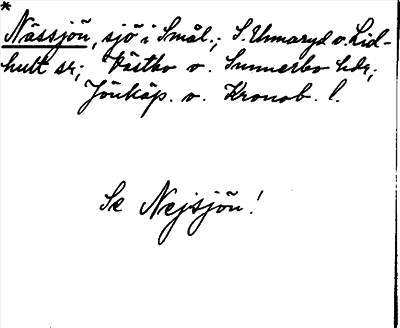 *
Nässjön, sjö i Smål.; S. Unnaryd o. Lid-
hult sr; Västbo o. Sunnerbo hdr;
Jönköp. o. Kronob. l.
Se Nejsjön!